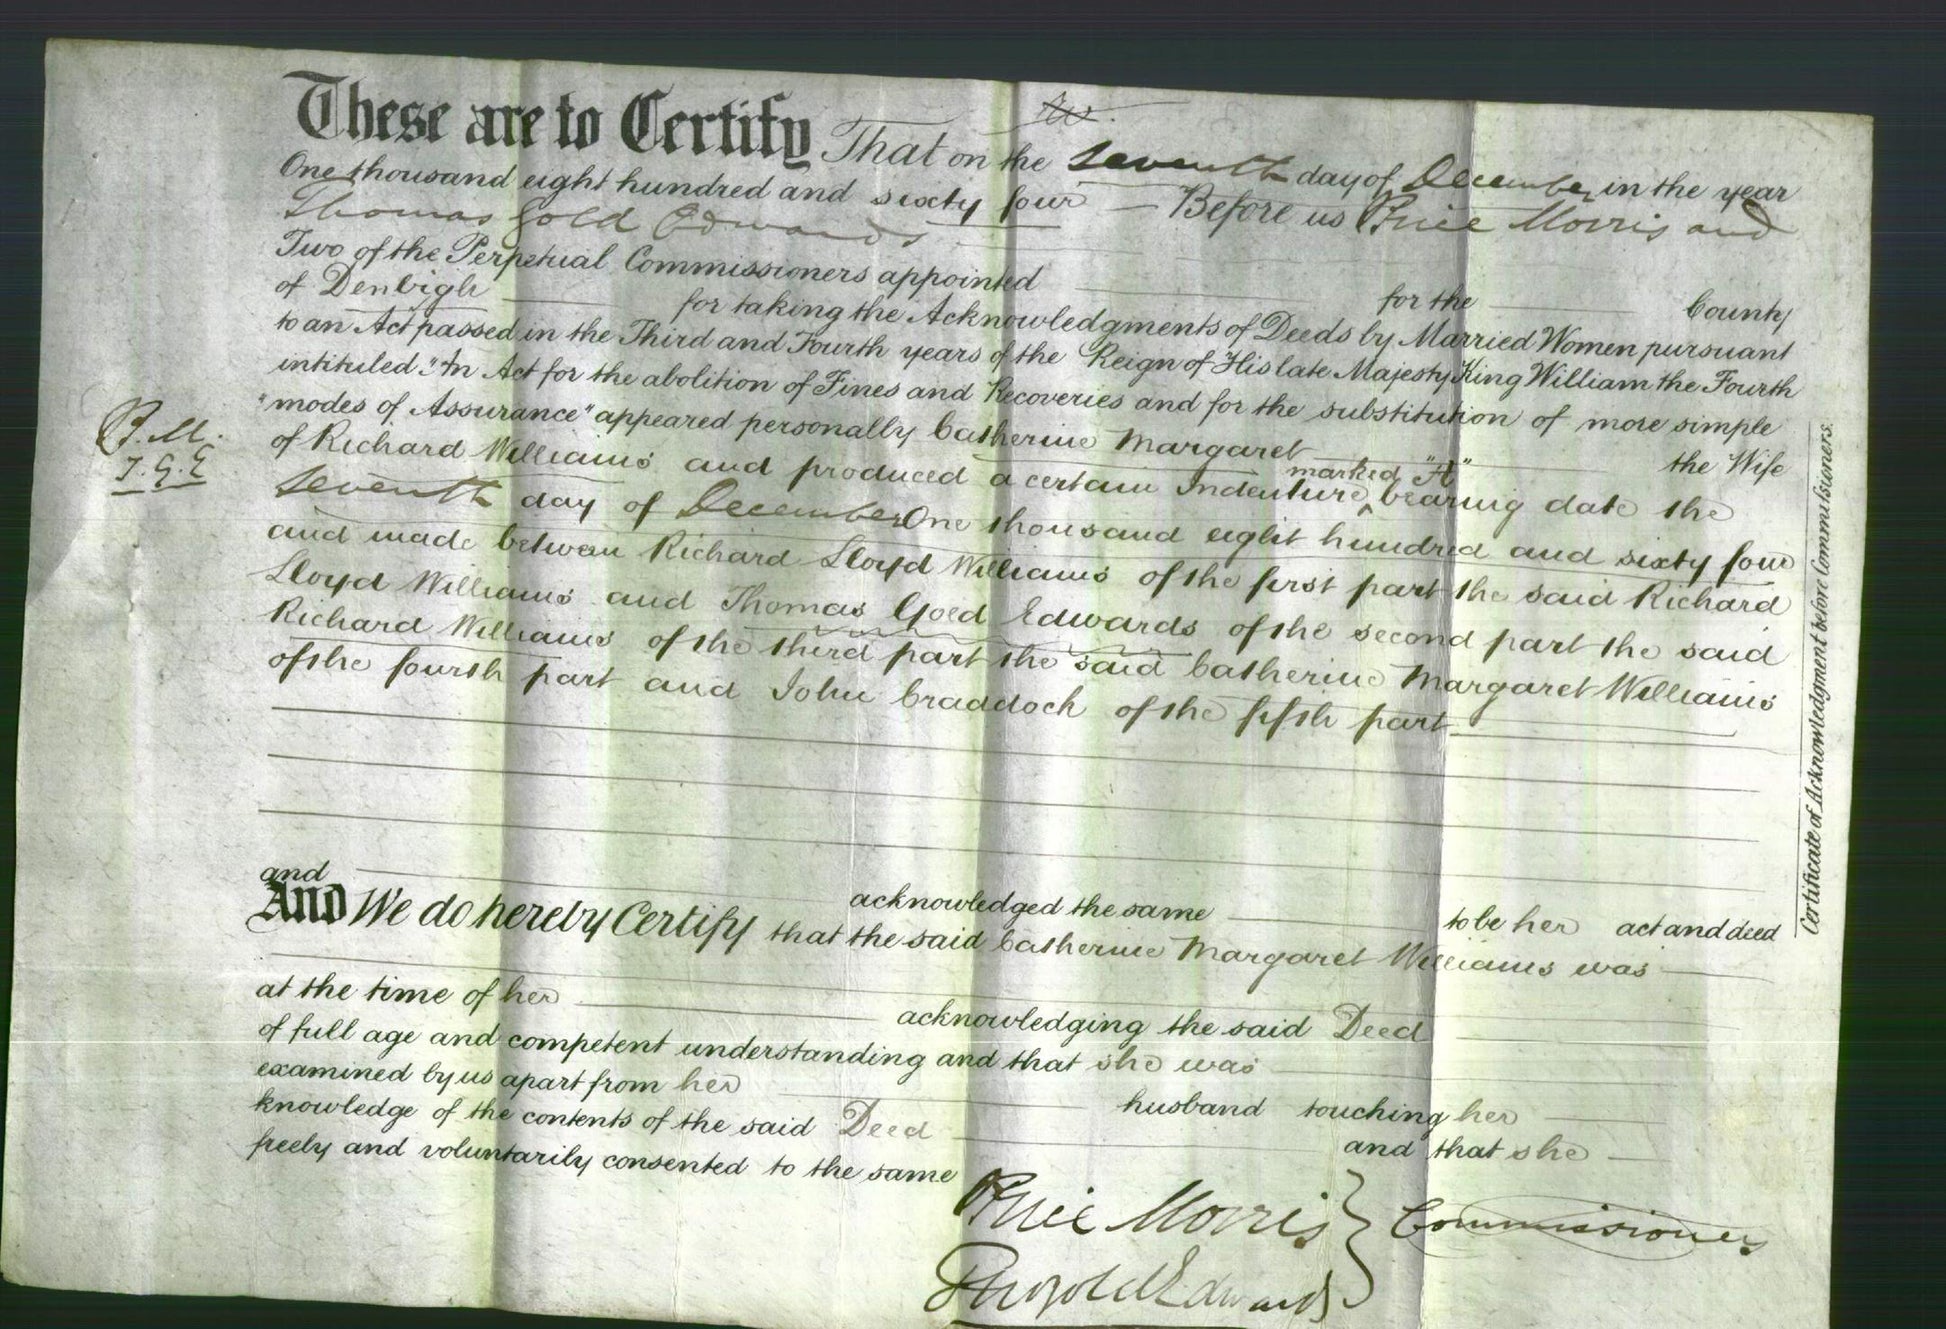 These are to Certify That on the seventh day of December in the year
One thousand eight hundred and sixty four Before us Price Morris and
Thomas Gold Edwards
Two of the Perpetual Commissioners appointed for the County
of Denbigh for taking the Acknowledgments of Deeds by Married Women pursuant
to an Act passed in the Third and Fourth years of the Reign of His late Majesty King William the Fourth
intituled "An Act for the abolition of Fines and Recoveries and for the substitution of more simple
"modes of Assurance" appeared personally Catherine Margaret the Wife
of Richard Williams and produced a certain Indenture marked "A" bearing date the
seventh day of December One thousand eight hundred and sixty four
and made between Richard Lloyd Williams of the first part the said Richard
Lloyd Williams and Thomas Goed Edwards of the second part the said
Richard Williams of the third part the said Catherine Margaret Williams
of the fourth part and John Craddock of the fifth part
P.M.
T.G.E
and acknowledged the same to be her act and deed
And We do hereby Certify that the said Catherine Margaret Williams was
at the time of her acknowledging the said Deed
of full age and competent understanding and that she was
examined by us apart from her husband touching her
knowledge of the contents of the said Deed and that she
freely and voluntarily consented to the same
Price Morris
Commissioners
Thos Gold Edwards
Certificate of Acknowledgment before Commissioners.